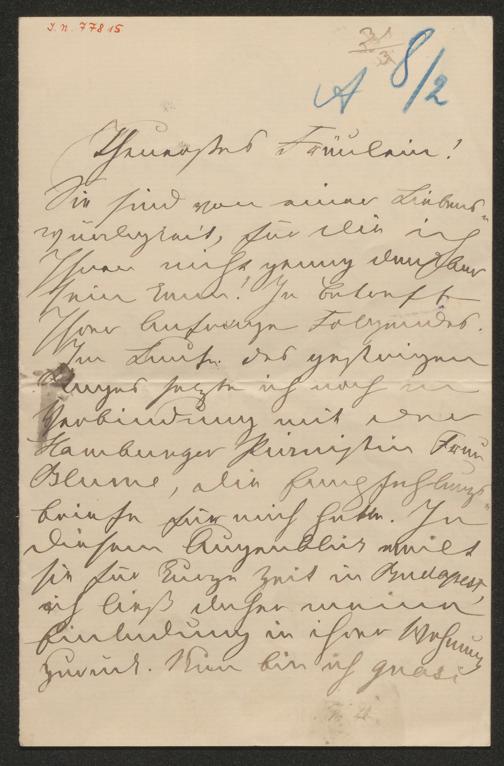 J. N. 77815
A 8/2
Theuerstes Fräulein!
Sie sind von einer Liebens-
würdigkeit, für die ich
Ihnen nicht genug dankbar
sein kann! In Betreff
Ihrer Anfrage Folgendes.
Im Laufe des gestrigen
Tages setzte ich mich in
Verbindung mit einer
Hamburger Pianistin Frau
Blume, die Empfehlungs-
briefe für mich hatte. In
diesem Augenblick weilt
sie für kurze Zeit in Budapest,
ich ließ daher meine
Einladung in ihrer Wohnung
zurück. Nun bin ich quasi